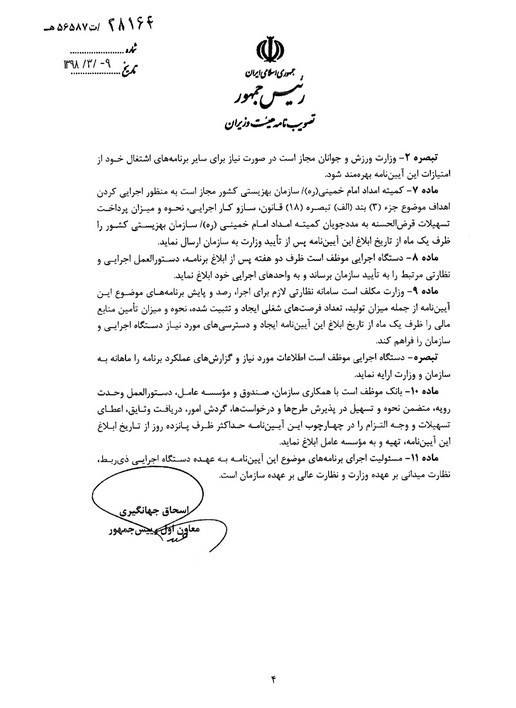 ۲۸۱۶۴ /ت۵۶۵۸۷هـ
شماره
تاریخ ۱۳۹۸/۳/۰۹
جمهوری اسلامی ایران
رئیس جمهور
تصویب نامه هیئت وزیران
تبصره ۲- وزارت ورزش و جوانان مجاز است در صورت نیاز برای سایر برنامه‌های اشتغال خود از
امتیازات این آیین‌نامه بهره‌مند شود.
ماده ۷- کمیته امداد امام خمینی(ره)/ سازمان بهزیستی کشور مجاز است به منظور اجرایی کردن
اهداف موضوع جزء (۳) بند (الف) تبصره (۱۸) قانون، سازو کار اجرایی، نحوه و میزان پرداخت
تسهیلات قرض‌الحسنه به مددجویان کمیته امداد امام خمینی (ره)/ سازمان بهزیستی کشور را
ظرف یک ماه از تاریخ ابلاغ این آیین‌نامه پس از تأیید وزارت به سازمان ارسال نماید.
ماده ۸- دستگاه اجرایی موظف است ظرف دو هفته پس از ابلاغ برنامه، دستورالعمل اجرایی و
نظارتی مرتبط را به تأیید سازمان برساند و به واحدهای اجرایی خود ابلاغ نماید.
ماده ۹- وزارت مکلف است سامانه نظارتی لازم برای اجرا، رصد و پایش برنامه‌های موضوع این
آیین‌نامه از جمله میزان تولید، تعداد فرصت‌های شغلی ایجاد و تثبیت شده، نحوه و میزان تأمین منابع
مالی را ظرف یک ماه از تاریخ ابلاغ این آیین‌نامه ایجاد و دسترسی‌های مورد نیاز دستگاه اجرایی و
سازمان را فراهم کند.
تبصره- دستگاه اجرایی موظف است اطلاعات مورد نیاز و گزارش‌های عملکرد برنامه را ماهانه به
سازمان و وزارت ارایه نماید.
ماده ۱۰- بانک موظف است با همکاری سازمان، صندوق و مؤسسه عامل، دستورالعمل وحدت
رویه، متضمن نحوه و تسهیل در پذیرش طرح‌ها و درخواست‌ها، گردش امور، دریافت وثایق، اعطای
تسهیلات و وجه التزام را در چهارچوب این آیین‌نامه حداکثر ظرف پانزده روز از تاریخ ابلاغ
این آیین‌نامه، تهیه و به مؤسسه عامل ابلاغ نماید.
ماده ۱۱- مسئولیت اجرای برنامه‌های موضوع این آیین‌نامه به عهده دستگاه اجرایی ذی‌ربط،
نظارت میدانی بر عهده وزارت و نظارت عالی بر عهده سازمان است.
اسحاق جهانگیری
معاون اول رییس‌جمهور
۴